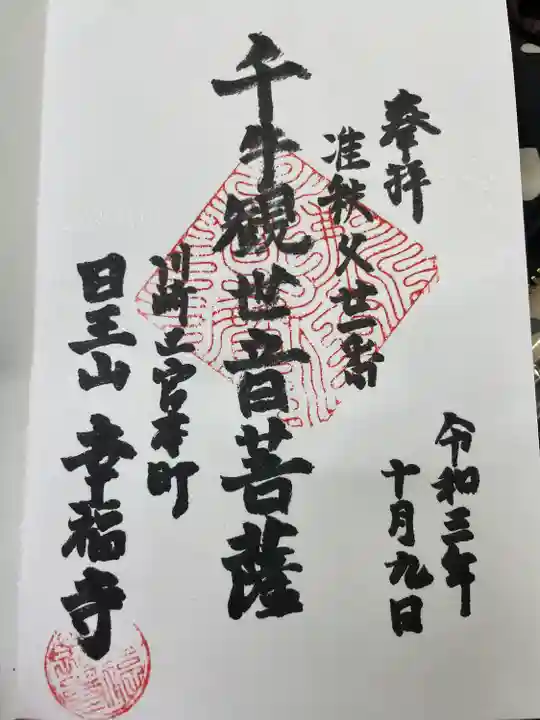 奉拝
准秩父廿一番
令和三年
十月九日
千手観世音菩薩
川崎市宮本町
日王山 幸福寺